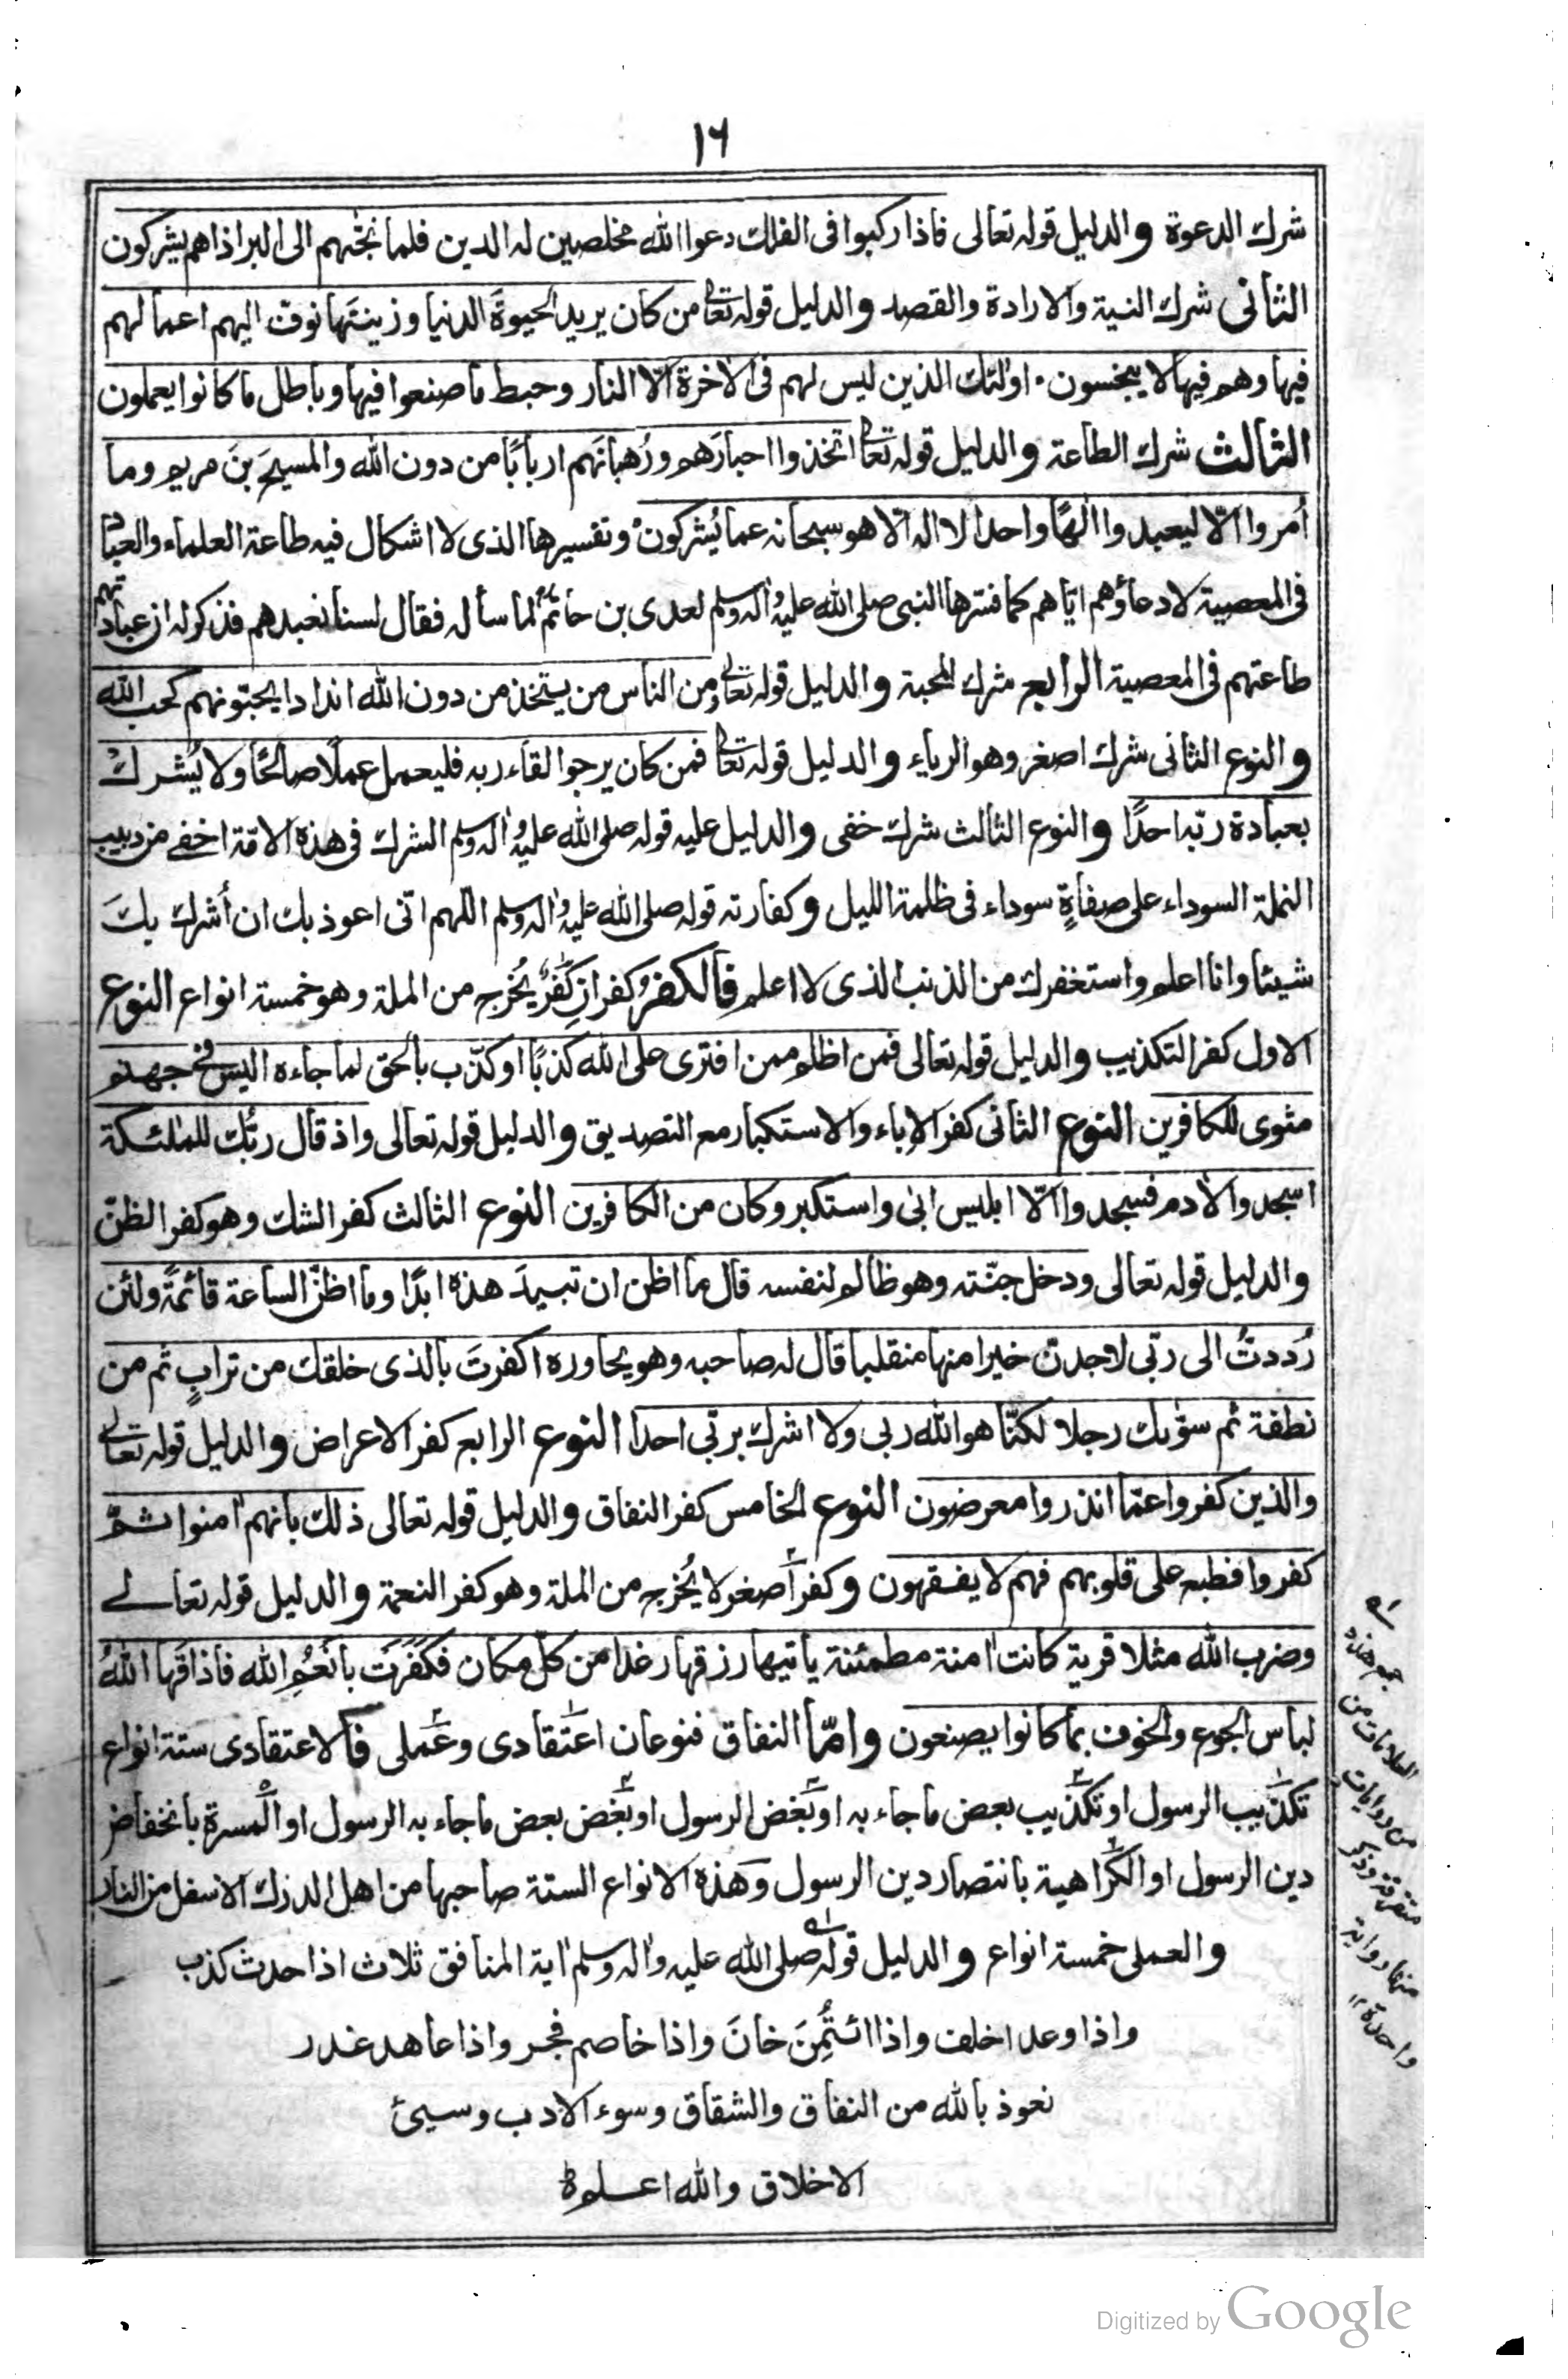 ١٦
شرك الدعوة والدليل قوله تعالى فاذا ركبوا فى الفلك دعوا الله مخلصين له الدين فلما نجّٰهم الى البر اذا هم يشركون
الثانى شرك النية والارادة والقصد والدليل قوله تعالى من كان يريد الحيوةَ الدنيا وزينتَها نوف اليهم اعمالهم
فيها وهم فيها لا يبخسون ۰ اولٰئك الذين ليس لهم فى الاخرة الّا النار وحبط ما صنعوا فيها وباطل ما كانوا يعملون
الثالث شرك الطاعة والدليل قوله تعالى اتخذوا احبارَهم ورُهبانَهم اربابًا من دون الله والمسيحَ بنَ مريم وما
اُمروا الّا ليعبدوا الٰهًا واحدا لا اله الّا هو سبحانه عما يُشركون وتفسيرها الذى لا اشكال فيه طاعة العلماء والعباد
فى المعصية لا دعاؤهم ايّاهم كما فسّرها النبى صلى الله عليه واٰله وسلم لعدى بن حاتم لما سأله فقال لسنا نعبدهم فذكر له ان عبادتهم
طاعتهم فى المعصية الرابع شرك المحبة والدليل قوله تعالى ومن الناس من يتخذ من دون الله اندادا يحبّونهم كحب الله
والنوع الثانى شرك اصغر وهو الرياء والدليل قوله تعالى فمن كان يرجوا لقاء ربه فليعمل عملًا صالحًا ولا يُشرك
بعبادة ربّه احدًا والنوع الثالث شرك خفى والدليل عليه قوله صلى الله عليه واٰله وسلم الشرك فى هذه الامّة اخفى من دبيب
النملة السوداء على صفاةٍ سوداء فى ظلمة الليل وكفارته قوله صلى الله عليه واٰله وسلم اللهم انى اعوذ بك ان أُشرك بكَ
شيئا وانا اعلم واستغفرك من الذنب الذى لا اعلم فالكفرُ كفرانِ كُفرٌ يُخرج من الملة وهو خمسة انواع النوع
الاول كفر التكذيب والدليل قوله تعالى فمن اظلم ممن افترى على الله كذبًا او كذّب بالحق لما جاءه اليس فى جهنم
مثوى للكافرين النوع الثانى كفر الاباء والاستكبار مع التصديق والدليل قوله تعالى واذ قال ربّك للملٰئكة
اسجدوا لاٰدم فسجدوا الّا ابليس ابى واستكبر وكان من الكافرين النوع الثالث كفر الشك وهو كفر الظنّ
والدليل قوله تعالى ودخل جنّته وهو ظالم لنفسه قال ما اظن ان تبيدَ هذه ابدًا وما اظنّ الساعة قائمةً ولئن
رُددتُ الى ربّى لاجدن خيرا منها منقلبا قال له صاحبه وهو يحاوره اكفرتَ بالذى خلقك من ترابٍ ثم من
نطفة ثم سوّٰىك رجلا لكنّا هو الله ربى ولا اشرك بربّى احدا النوع الرابع كفر الاعراض والدليل قوله تعالى
والذين كفروا عمّا انذروا معرضون النوع الخامس كفر النفاق والدليل قوله تعالى ذلك بانهم اٰمنوا ثمّ
كفروا فطبع على قلوبهم فهم لا يفقهون وكفر أصغر لا يُخرج من الملة وهو كفر النعمة والدليل قوله تعالى
وضرب الله مثلا قرية كانت اٰمنة مطمئنة ياتيها رزقها رغدا من كلّ مكان فكفرت بانعُم الله فاذاقها اللهُ
لباس الجوع والخوف بما كانوا يصنعون وامّا النفاق فنوعان اعتقادى وعملى فالاعتقادى ستة انواع
تكذيب الرسول او تكذيب بعض ما جاء به او بغض الرسول او بغض بعض ما جاء به الرسول او المسرة بانخفاض
دين الرسول او الكراهية بانتصار دين الرسول وهذه الانواع الستة صاحبها من اهل الدرك الاسفل من النار
والعملى خمسة انواع والدليل قوله صلى الله عليه واٰله وسلم اٰية المنافق ثلاث اذا حدث كذب
واذا وعد اخلف واذا ائتُمِنَ خانَ واذا خاصم فجر واذا عاهد غدر
نعوذ بالله من النفاق والشقاق وسوء الادب وسيئ
الاخلاق والله اعلم
جمع هذه
العلامات من
من روايات
متفرقة وذكر
منها رواية
واحدة ١٢
Digitized by Google